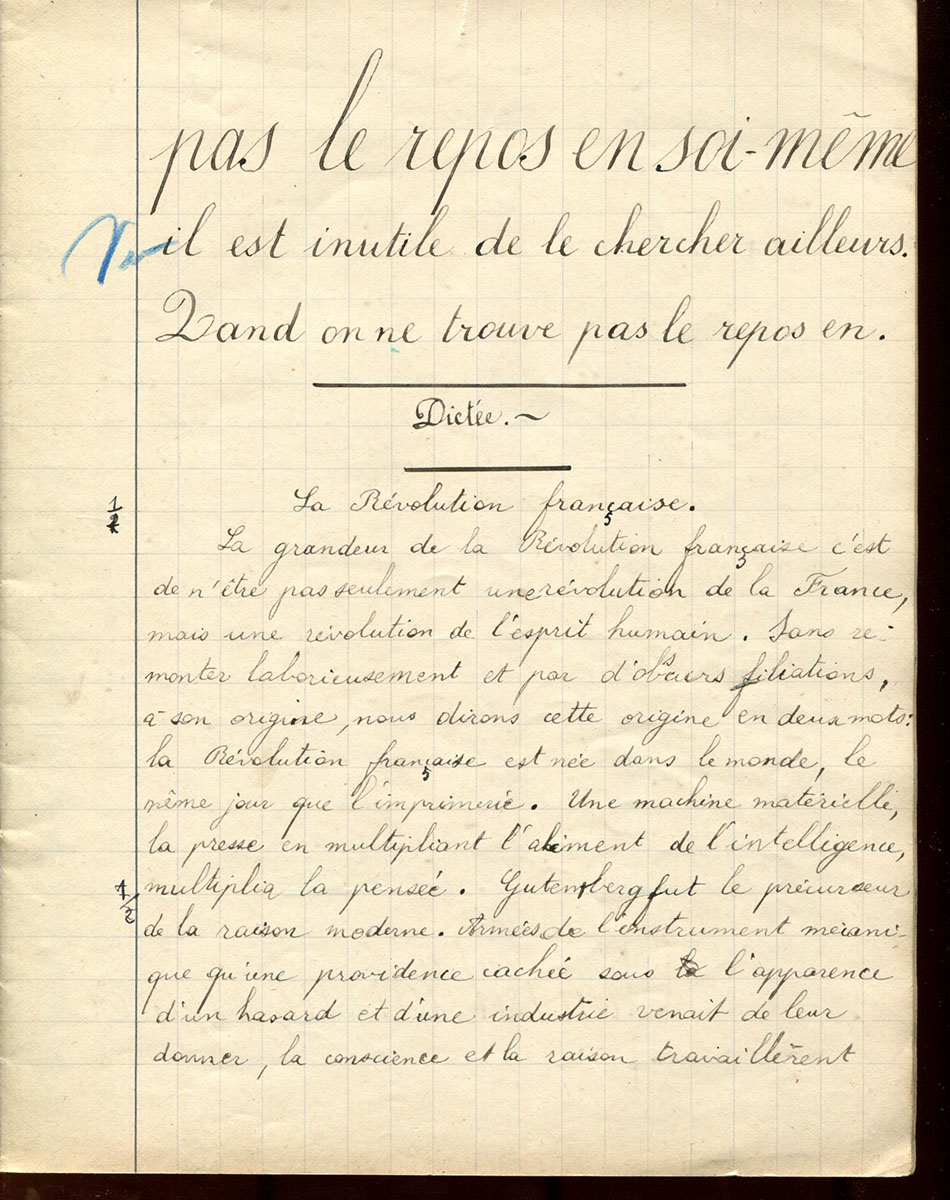 pas le repos en soi-même
il est inutile de le chercher ailleurs.
Quand on ne trouve pas le repos en.
Dictée. ~
La Révolution française.
La grandeur de la Révolution française c'est
de n'être pas seulement une révolution de la France,
mais une révolution de l'esprit humain. Sans re-
monter laborieusement et par d'obscurs filiations,
à son origine, nous dirons cette origine en deux mots:
la Révolution française est née dans le monde, le
même jour que l'imprimerie. Une machine matérielle,
la presse en multipliant l'aliment de l'intelligence,
multiplia la pensée. Gutemberg fut le précurseur
de la raison moderne. Armées de l'instrument mécani-
que qu'une providence cachée sous l'apparence
d'un hasard et d'une industrie venait de leur
donner, la conscience et la raison travaillèrent